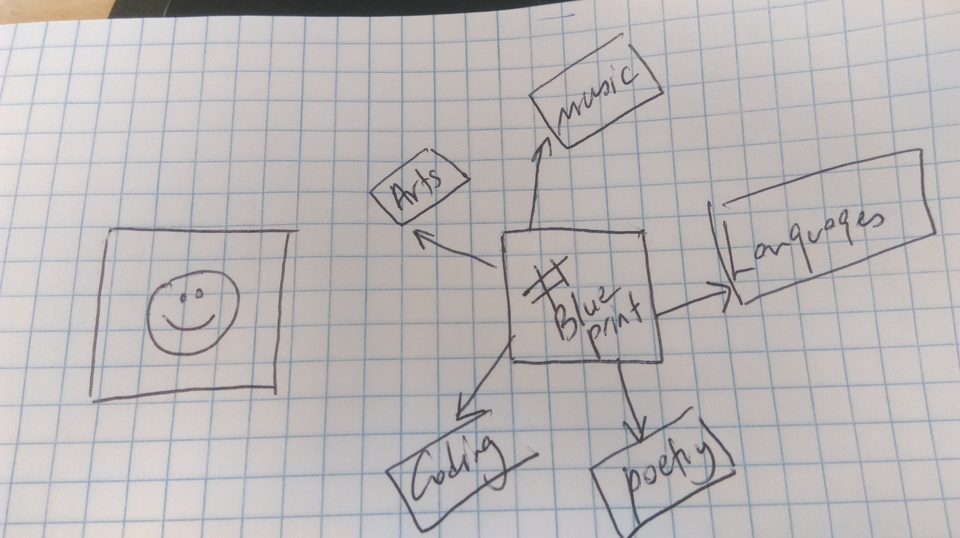 music
Arts
Languages
#
Blue
print
Coding
poetry